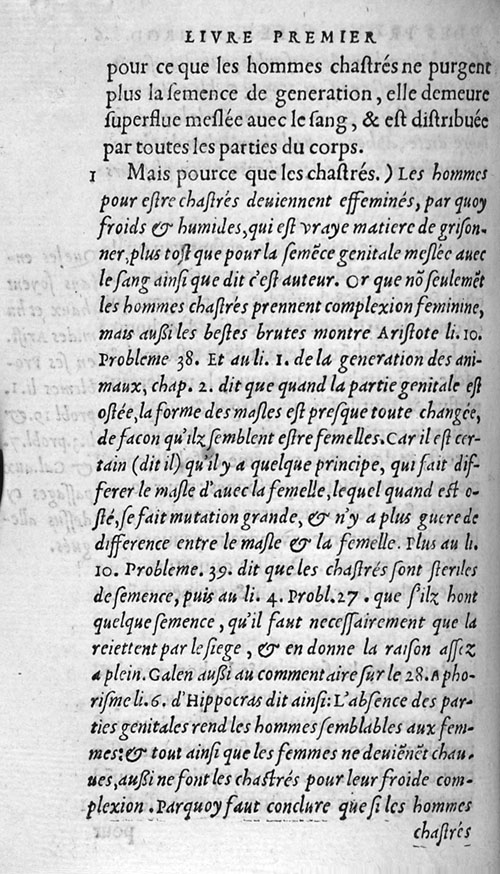 LIVRE PREMIER
pour ce que les hommes chaſtrés ne purgent
plus la ſemence de generation, elle demeure
ſuperflue meſlée auec le ſang, & eſt diſtribuée
par toutes les parties du corps.
1 Mais pource que les chaſtrés.) Les hommes
pour eſtre chaſtrés deuiennent effeminés, par quoy
froids & humides, qui eſt vraye matiere de griſon-
ner, plus toſt que pour la ſemẽce genitale meſlée auec
le ſang ainſi que dit c'eſt auteur. Or que nõ ſeulemẽt
les hommes chaſtrés prennent complexion feminine,
mais außi les beſtes brutes montre Ariſtote li. 10.
Probleme 38. Et au li. 1. de la generation des ani-
maux, chap. 2. dit que quand la partie genitale eſt
oſtée, la forme des maſles eſt preſque toute changée,
de facon qu'ilz ſemblent eſtre femelles. Car il eſt cer-
tain (dit il) qu'il y a quelque principe, qui fait dif-
ferer le maſle d'auec la femelle, lequel quand eſt o-
ſté, ſe fait mutation grande, & n'y a plus guere de
difference entre le maſle & la femelle. Plus au li.
10. Probleme. 39. dit que les chaſtrés ſont ſteriles
de ſemence, puis au li. 4. Probl. 27. que ſ'ilz hont
quelque ſemence, qu'il faut neceſſairement que la
reiettent par le ſiege, & en donne la raiſon aſſez
a plein. Galen außi au commentaire ſur le 28. Apho-
riſme li. 6. d'Hippocras dit ainſi: L'abſence des par-
ties genitales rend les hommes ſemblables aux fem-
mes: & tout ainſi que les femmes ne deuiẽnẽt chau-
ues, außi ne font les chaſtrés pour leur froide com-
plexion. Parquoy faut conclure que ſi les hommes
chaſtrés